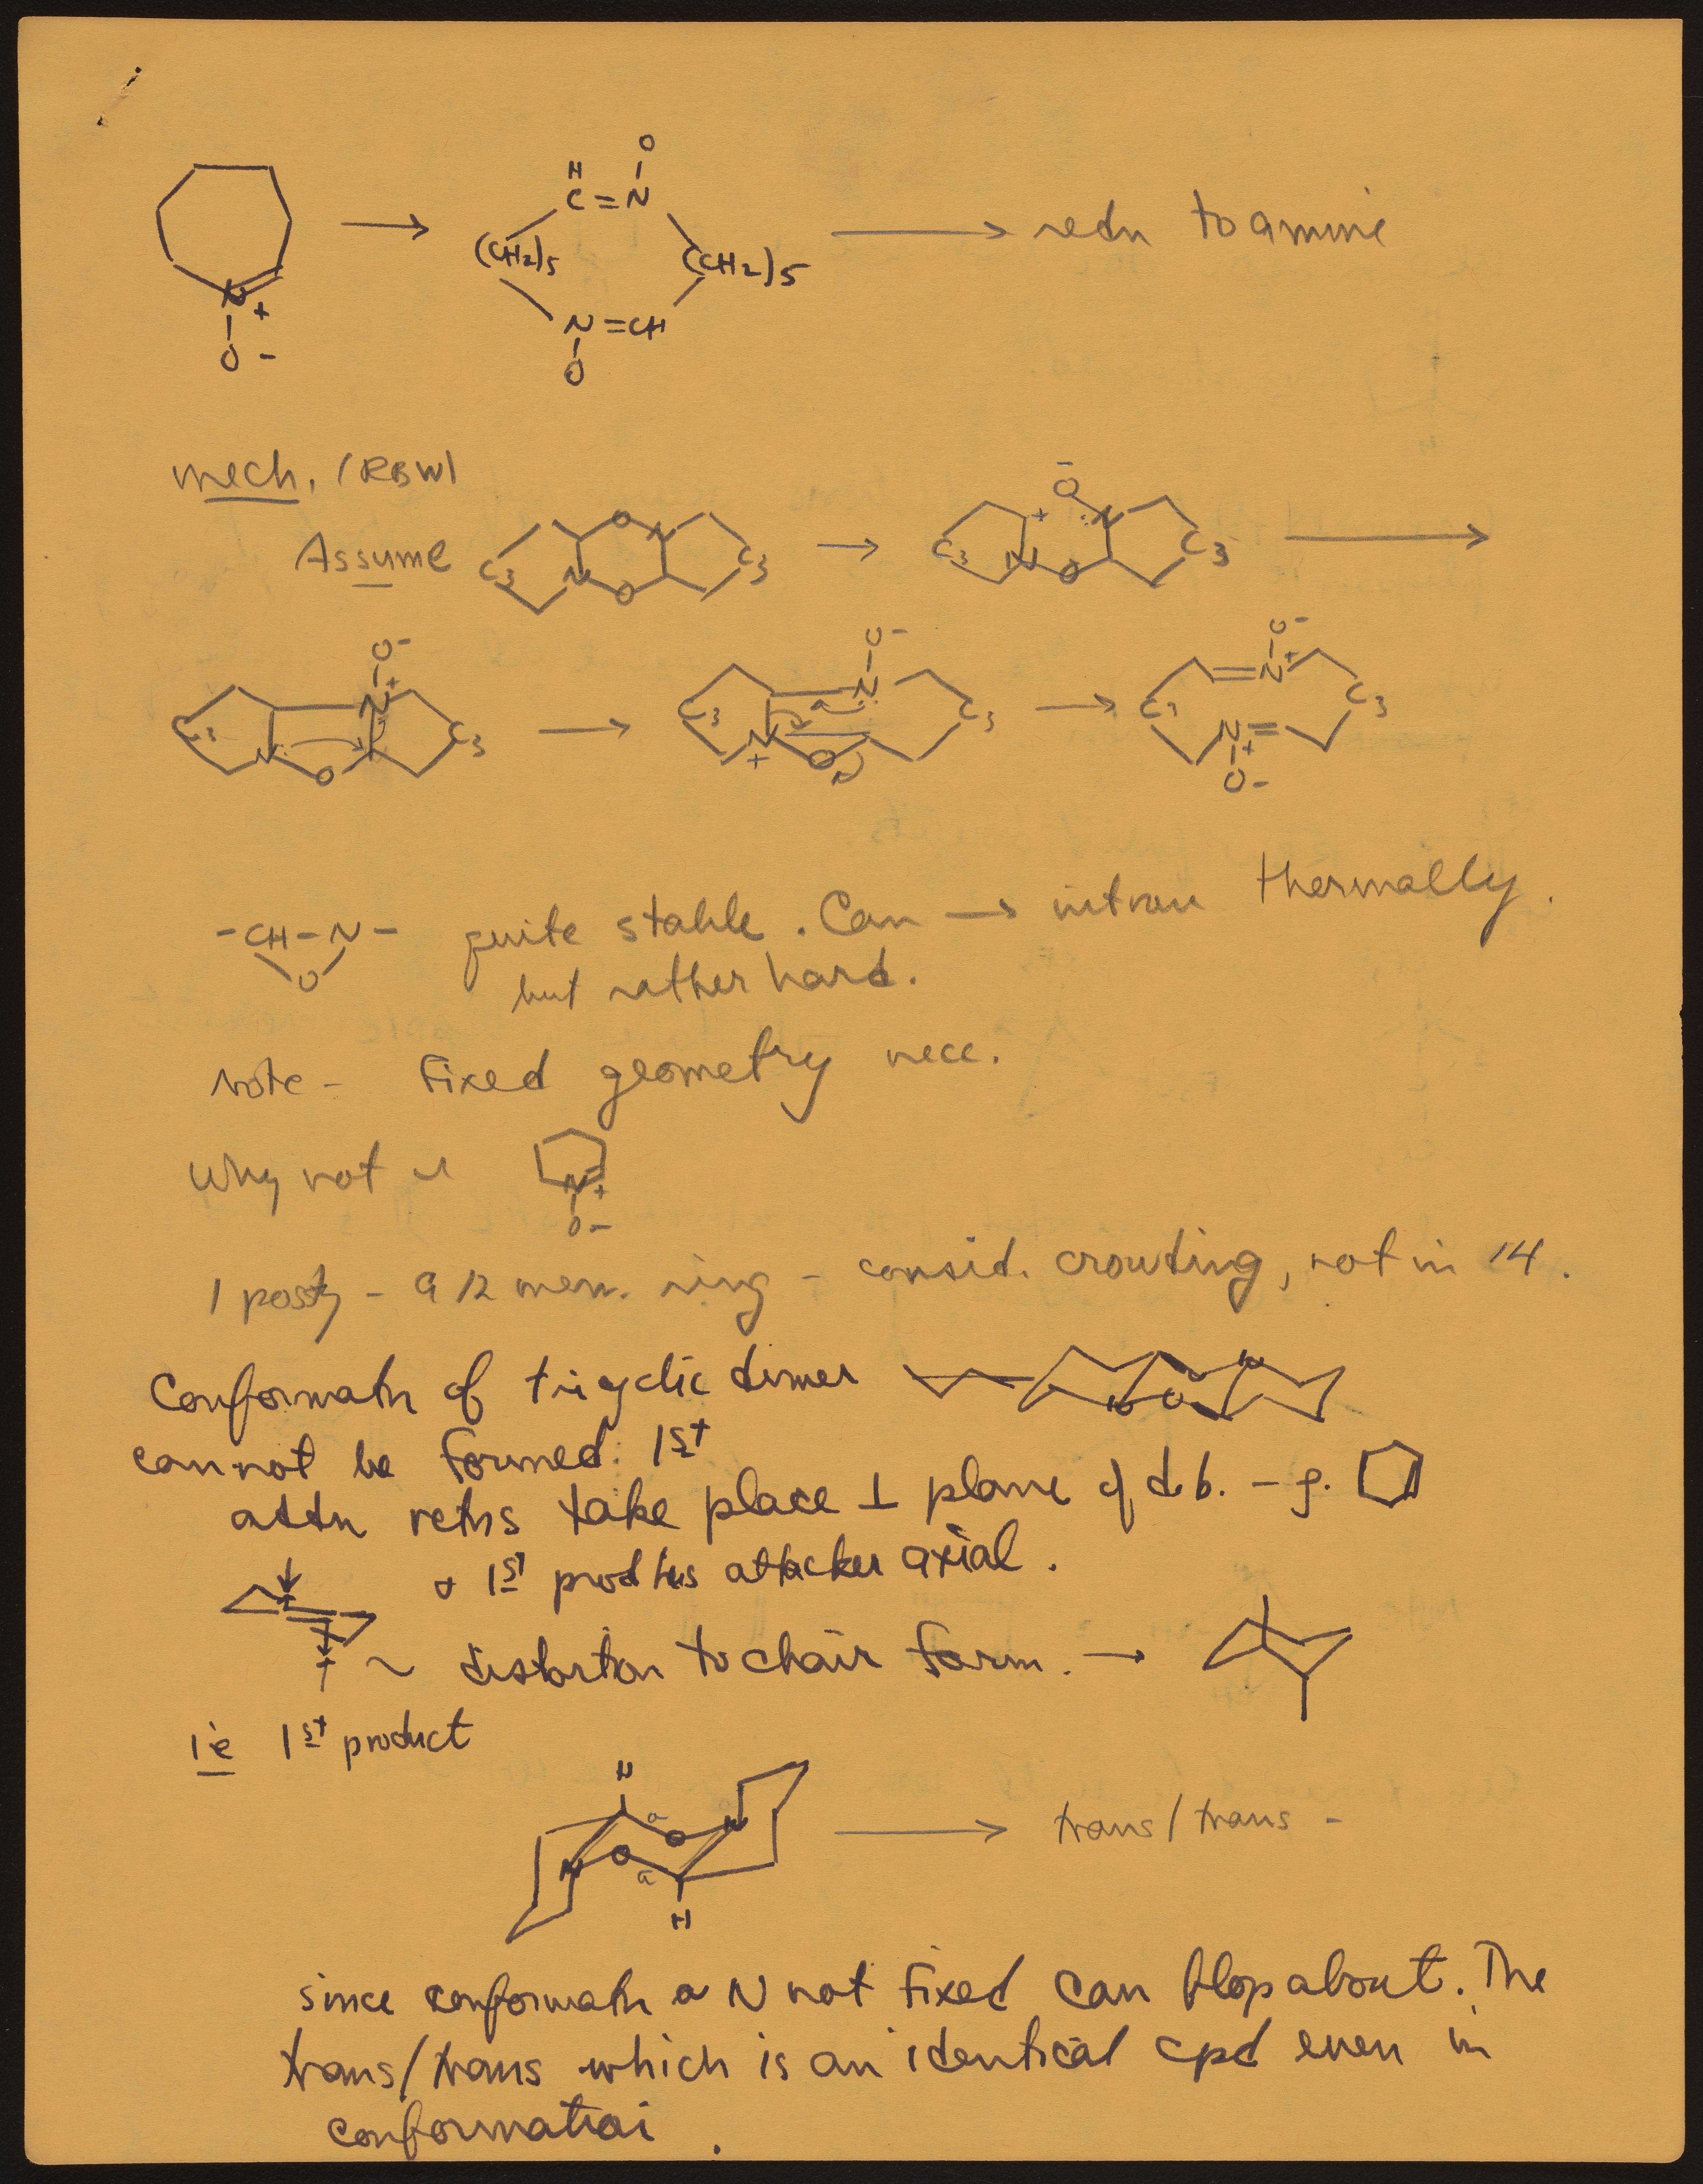 O
H
C=N
(CH2)5 (CH2)5 → redn to amine
N +
N=CH
O -
O
mech. (RBW)
Assume C3 N O O N C3 → C3 + N O O⁻ N C3 →
C3 N O N+ O- C3 → C3 N + O N O- C3 → C3 N+ O- N+ O- C3
-CH-N- quite stable. Can → nitrone thermally.
O but rather hard.
Note - Fixed geometry nece.
Why not
N +
O-
1 possy - a 12 mem. ring - consid. crowding, not in 14.
Conformatn of tricyclic dimer N O O N
cannot be formed. 1st
addn retns take place ⊥ plane of d.b. - g.
+ 1st prod has attacker axial.
~ distortion to chair form. →
ie 1st product
H
a O N → trans/trans -
N O a
H
since conformatn a N not fixed can flop about. The
trans/trans which is an identical cpd even in
conformation.